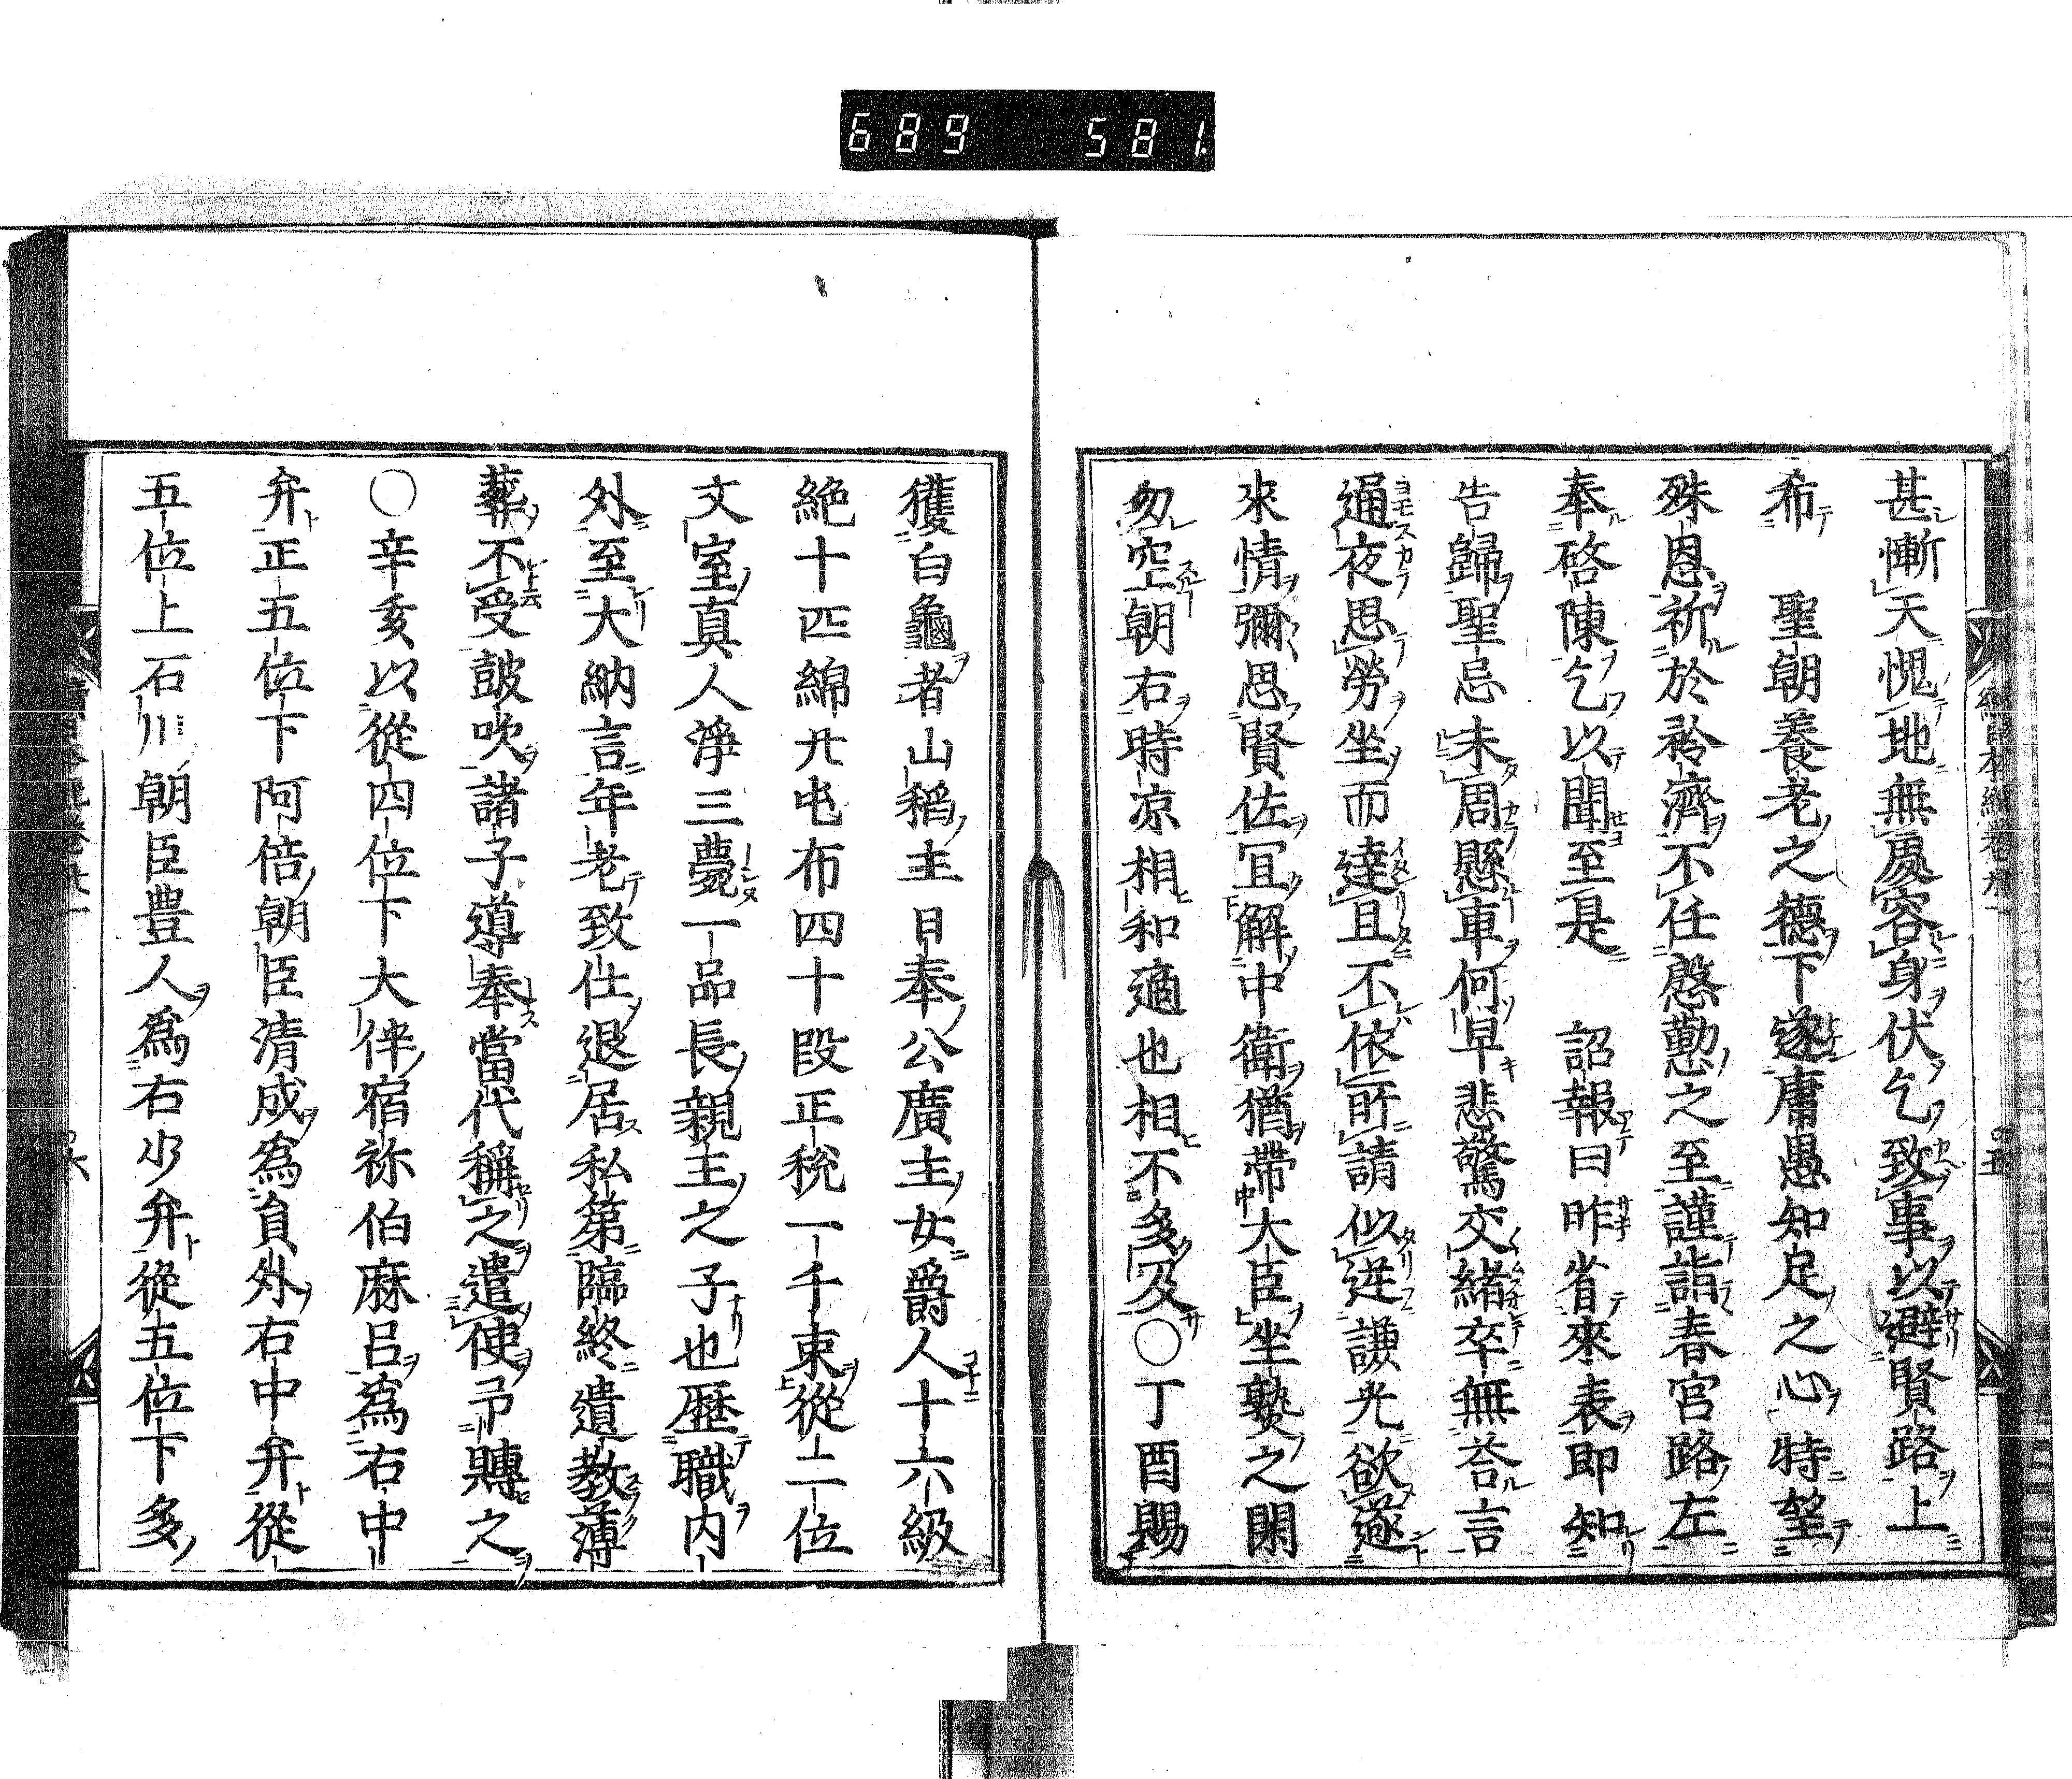 689 581
甚慚天愧地無處容身伏乞致事以避賢路上
希 聖朝養老之德下遂庸愚知足之心特望
殊恩祈於矜濟不任慇懃之至謹詣春宮路左
奉啓陳乞以聞至是 詔報曰昨省來表即知
告歸聖忌未周懸車何早悲驚交緒卒無荅言
通夜思勞坐而達旦不依所請似逆謙光欲遂
來情彌思賢佐冝解中衛猶帶大臣坐褻之閑
勿空朝右時凉相和適也相不多及○丁酉賜
獲白龜者山稻主日奉公廣主女爵人十六級
絁十匹綿廿屯布四十段正稅一千束從二位
文室真人淨三薨一品長親王之子也歷職內
外至大納言年老致仕退居私第臨終遺教薄
葬不受皷吹諸子導奉當代稱之遣使弔賻之
○辛亥以從四位下大伴宿祢伯麻呂爲右中
弁正五位下阿倍朝臣清成爲員外右中弁從
五位上石川朝臣豊人爲右少弁從五位下多